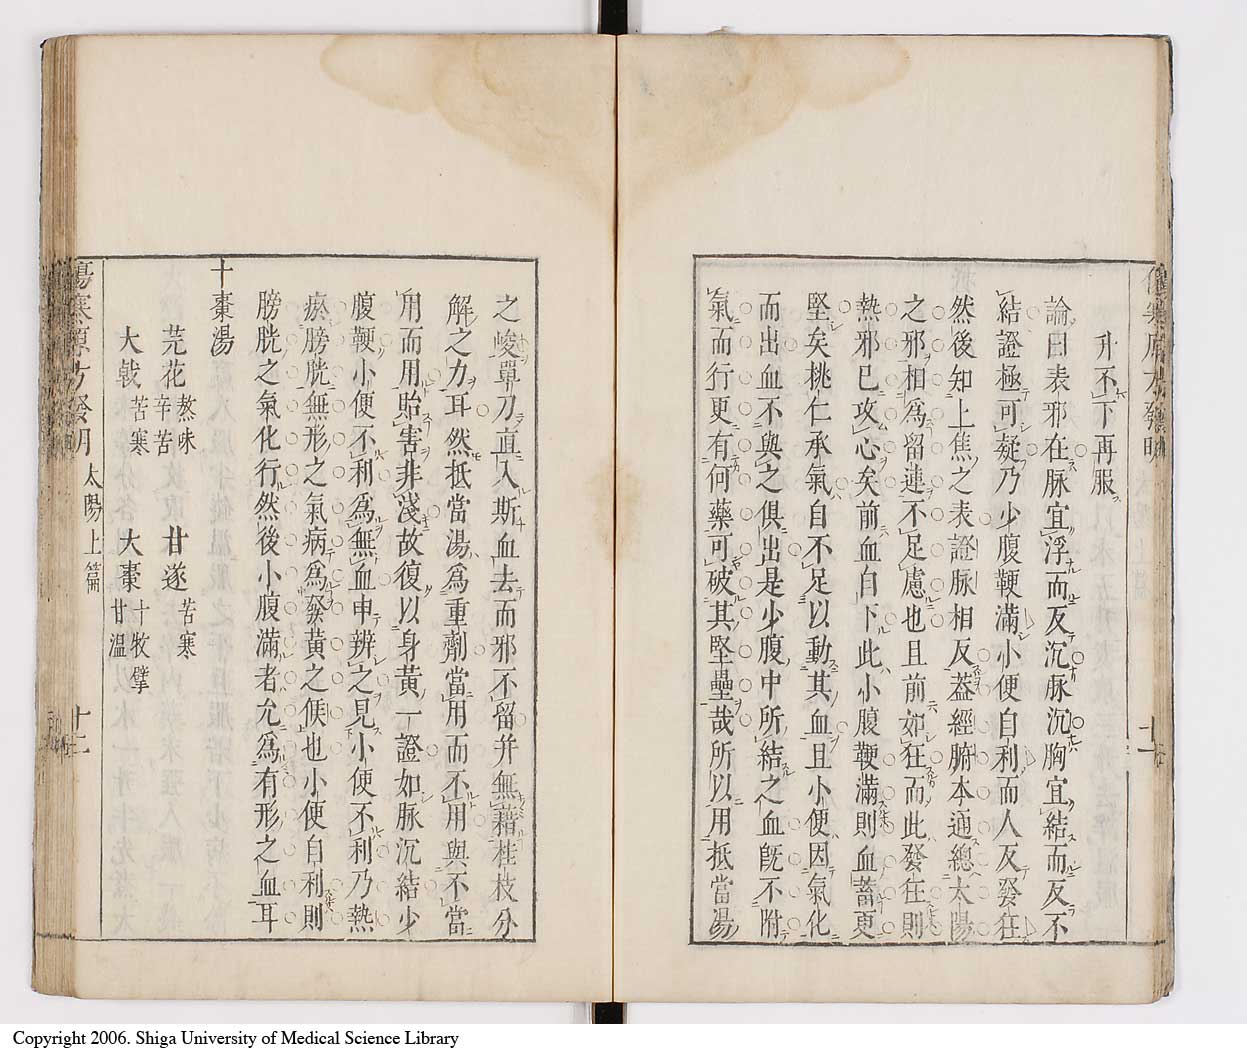 升不下再服
論曰表邪在脉宜浮而反沉脉沉胸宜結而反不
結證極可疑乃少腹鞕滿小便自利而人反發狂
然後知上焦之表證脉相反葢經腑本通總太陽
之邪相爲留連不足慮也且前如狂而此發狂則
熱邪已攻心矣前血自下此小腹鞕滿則血蓄更
堅矣桃仁承氣自不足以動其血且小便因氣化
而出血不與之俱出是少腹中所結之血旣不附
氣而行更有何藥可破其堅壘哉所以用抵當湯
之峻單刀直入斯血去而邪不留并無藉桂枝分
解之力耳然抵當湯爲重劑當用而不用與不當
用而用貽害非淺故復以身黄一證如脉沉結少
腹鞕小便不利爲無血申辨之見小便不利乃熱
瘀膀胱無形之氣病爲發黄之候也小便自利則
膀胱之氣化行然後小腹滿者允爲有形之血耳
十棗湯
芫花 熬味辛苦 甘遂 苦寒
大戟 苦寒 大棗 十牧擘甘溫
傷寒原方發明 太陽上篇 十二